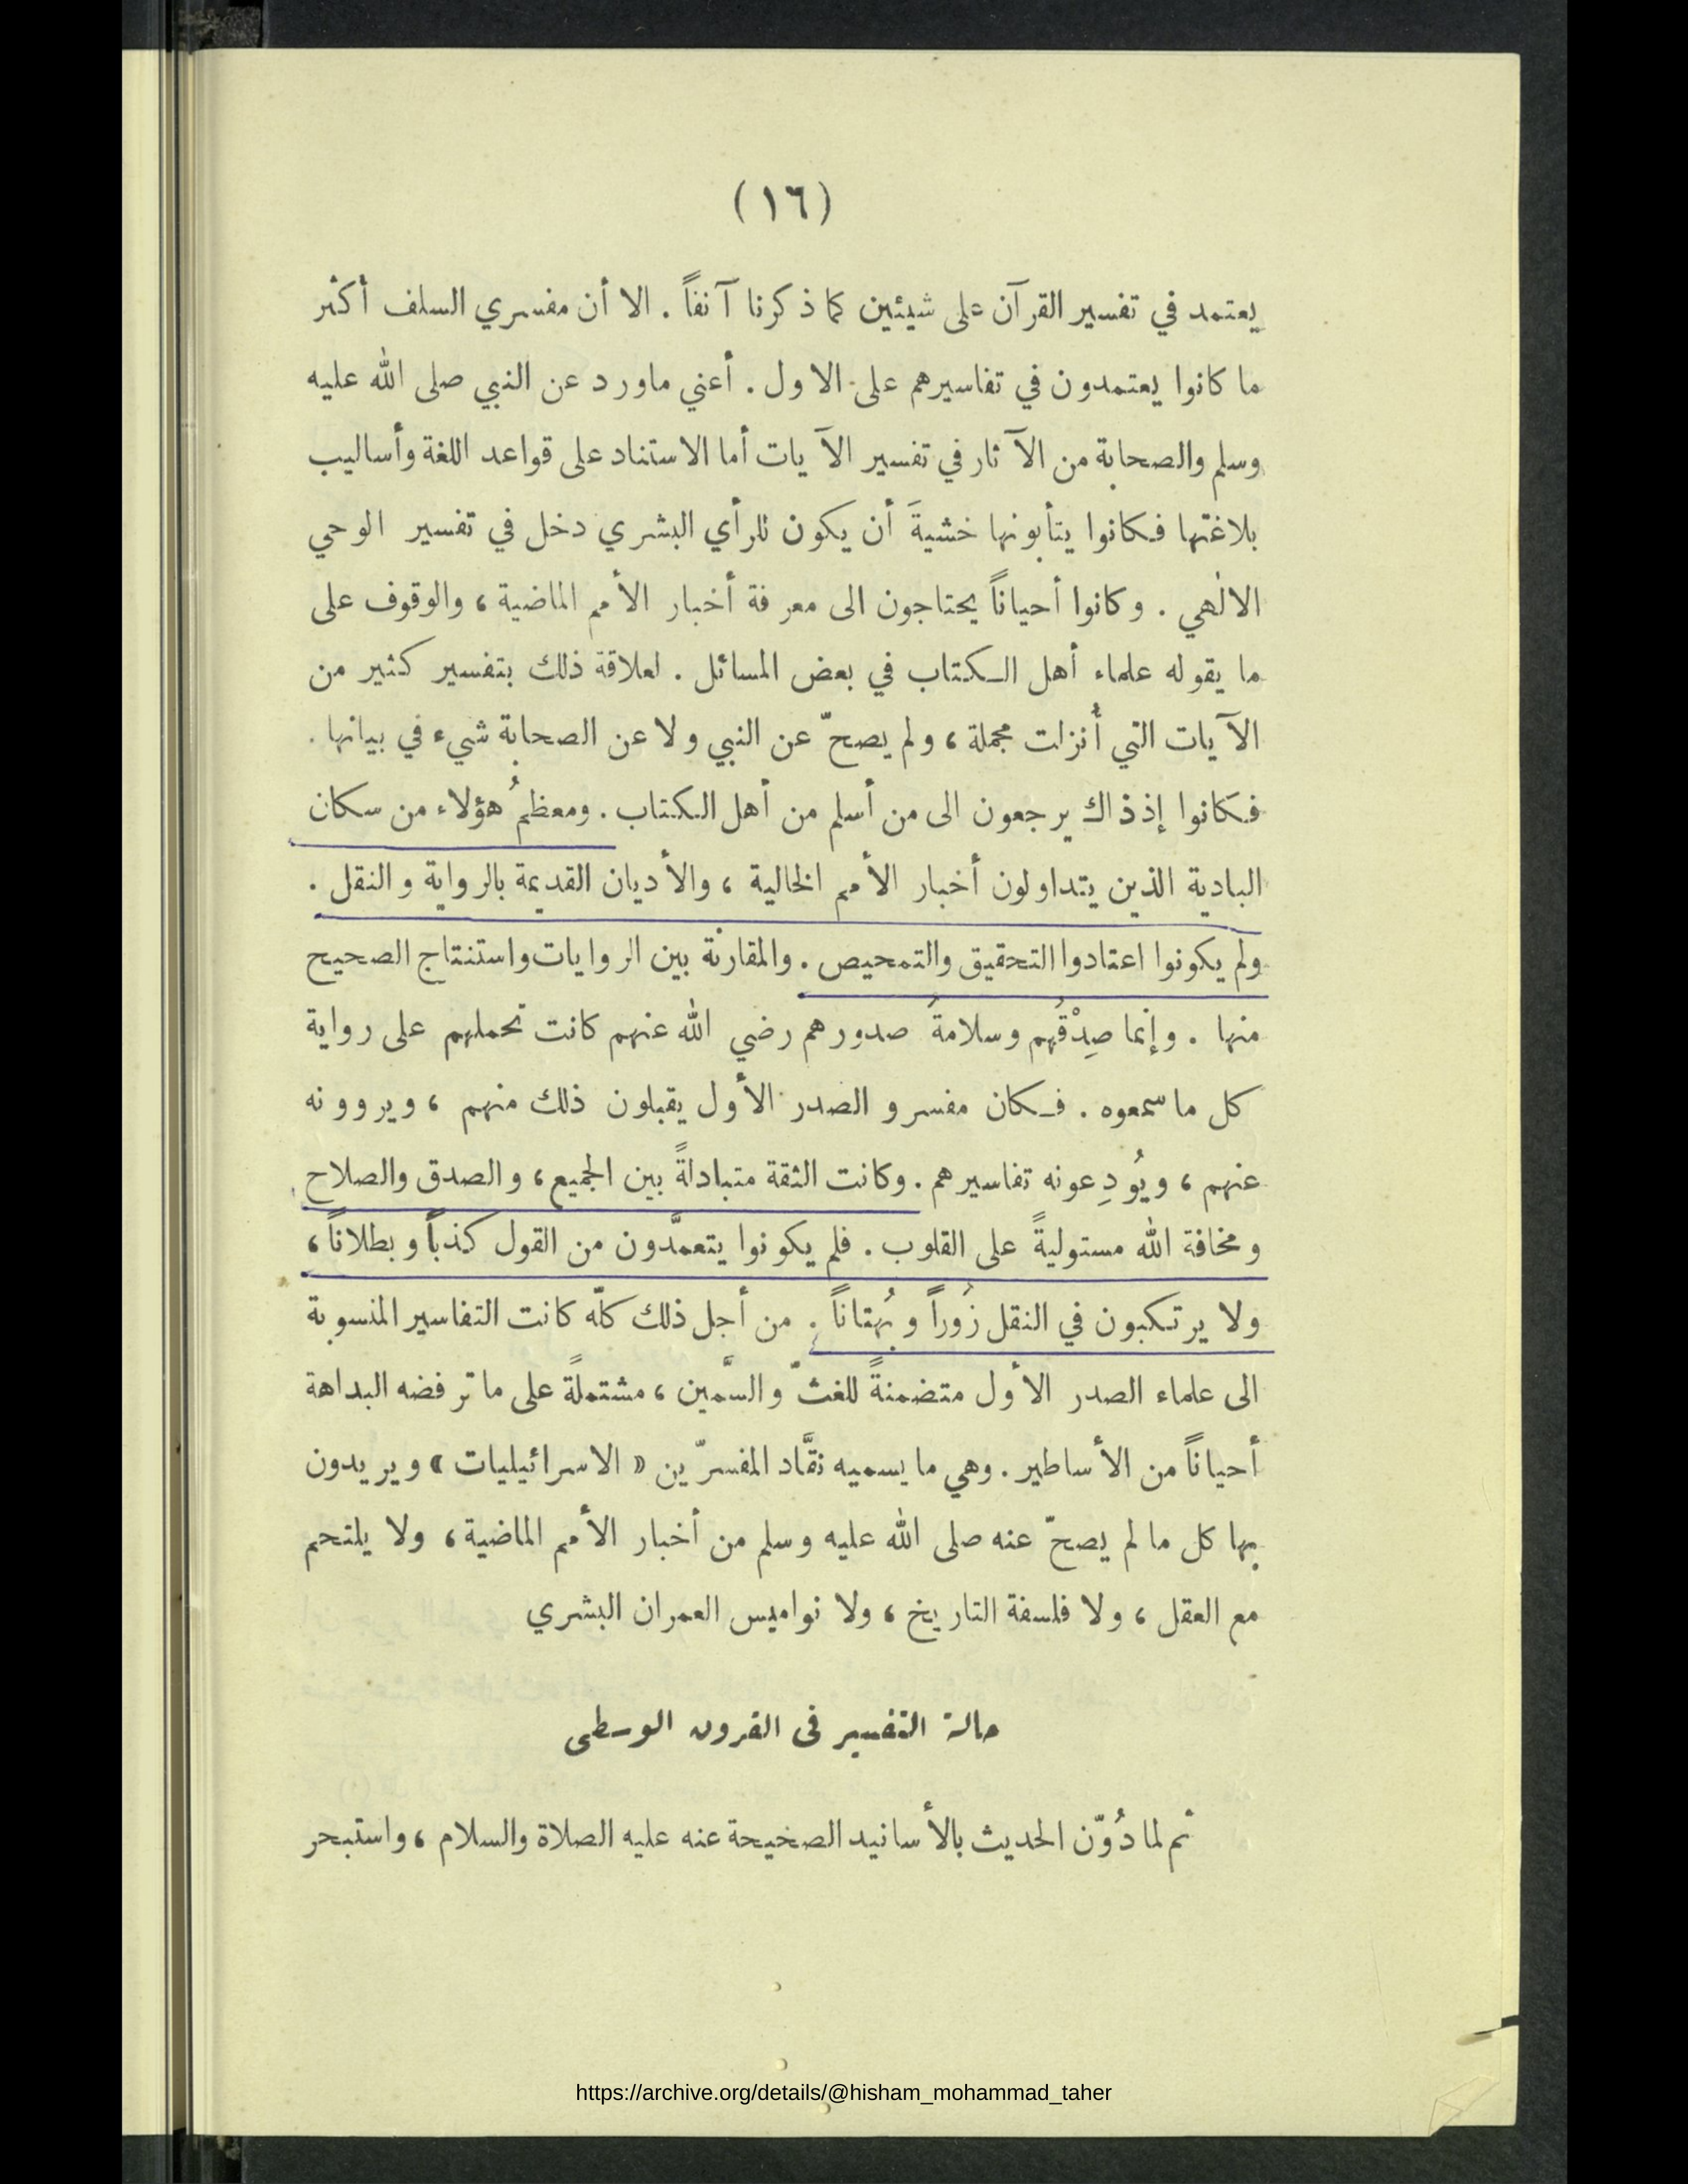 (١٦)
يعتمد في تفسير القرآن على شيئين كما ذكرنا آنفاً. الا أن مفسري السلف أكثر
ما كانوا يعتمدون في تفاسيرهم على الاول. أعني ماورد عن النبي صلى الله عليه
وسلم والصحابة من الآثار في تفسير الآيات أما الاستناد على قواعد اللغة وأساليب
بلاغتها فكانوا يتأبونها خشيةَ أن يكون للرأي البشري دخل في تفسير الوحي
الالٰهي. وكانوا أحياناً يحتاجون الى معرفة أخبار الأمم الماضية، والوقوف على
ما يقوله علماء أهل الكتاب في بعض المسائل. لعلاقة ذلك بتفسير كثير من
الآيات التي أُنزلت مجملة، ولم يصحّ عن النبي ولا عن الصحابة شيء في بيانها.
فكانوا إذ ذاك يرجعون الى من أسلم من أهل الكتاب. ومعظمُ هؤلاء من سكان
البادية الذين يتداولون أخبار الأمم الخالية، والأديان القديمة بالرواية والنقل.
ولم يكونوا اعتادوا التحقيق والتمحيص. والمقارنة بين الروايات واستنتاج الصحيح
منها. وإنما صِدْقُهم وسلامةُ صدورهم رضي الله عنهم كانت تحملهم على رواية
كل ما سمعوه. فكان مفسرو الصدر الأول يقبلون ذلك منهم، ويروونه
عنهم، ويُودِعونه تفاسيرهم. وكانت الثقة متبادلةً بين الجميع، والصدق والصلاح
ومخافة الله مستوليةً على القلوب. فلم يكونوا يتعمَّدون من القول كذباً وبطلاناً،
ولا يرتكبون في النقل زُوراً وبُهتاناً. من أجل ذلك كلّه كانت التفاسير المنسوبة
الى علماء الصدر الأول متضمنةً للغثّ والسَّمين، مشتملةً على ما ترفضه البداهة
أحياناً من الأساطير. وهي ما يسميه نقَّاد المفسرّين «الاسرائيليات» ويريدون
بها كل ما لم يصحّ عنه صلى الله عليه وسلم من أخبار الأمم الماضية، ولا يلتحم
مع العقل، ولا فلسفة التاريخ، ولا نواميس العمران البشري
حالة التفسير فى القرون الوسطى
ثم لما دُوّن الحديث بالأسانيد الصحيحة عنه عليه الصلاة والسلام، واستبحر
https://archive.org/details/@hisham_mohammad_taher